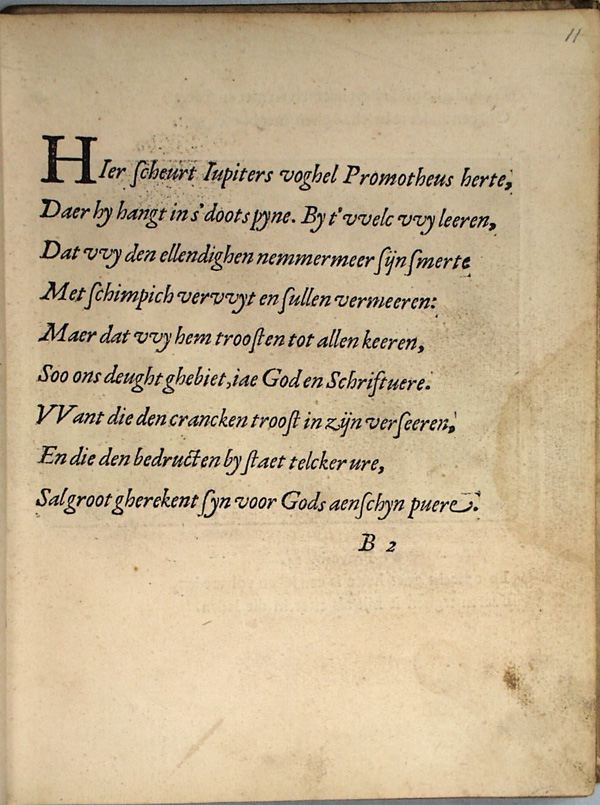 11
HIer ſcheurt Iupiters voghel Promotheus herte,
Daer hy hangt in s'doots pyne. By t'vvelc vvy leeren,
Dat vvy den ellendighen nemmermeer ſijn ſmerte
Met ſchimpich vervvyt en ſullen vermeeren:
Maer dat vvy hem trooſten tot allen keeren,
Soo ons deught ghebiet, iae God en Schriftuere.
VVant die den crancken trooſt in zijn verſeeren,
En die den bedructen by ſtaet telcker ure,
Sal groot gherekent ſyn voor Gods aenſchyn puere.
B 2